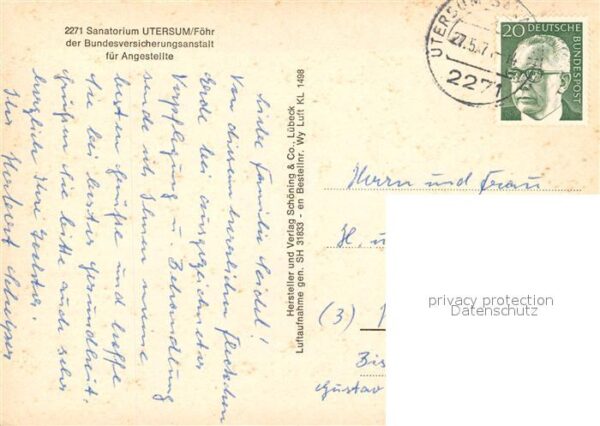 2271 Sanatorium UTERSUM/Föhr
der Bundesversicherungsanstalt
für Angestellte
Liebe Familie Seidel!
Von diesem herrlichen Fleckchen
Erde bei ausgezeichneter
Verpflegung u. Behandlung
sende ich Ihnen meine
besten Grüße und hoffe
Sie bei bester Gesundheit.
Grüßen Sie bitte auch sehr
herzlich Ihre
Ihr Herbert
Hersteller und Verlag Schöning & Co., Lübeck
Luftaufnahme gen. SH 31833 - en Bestellnr. Wy Luft KL 1498
UTERSUM
27.5.7
2271
20 DEUTSCHE
BUNDESPOST
Herrn und Frau
H. u
(3)
Bis
Gustav
privacy protection
Datenschutz